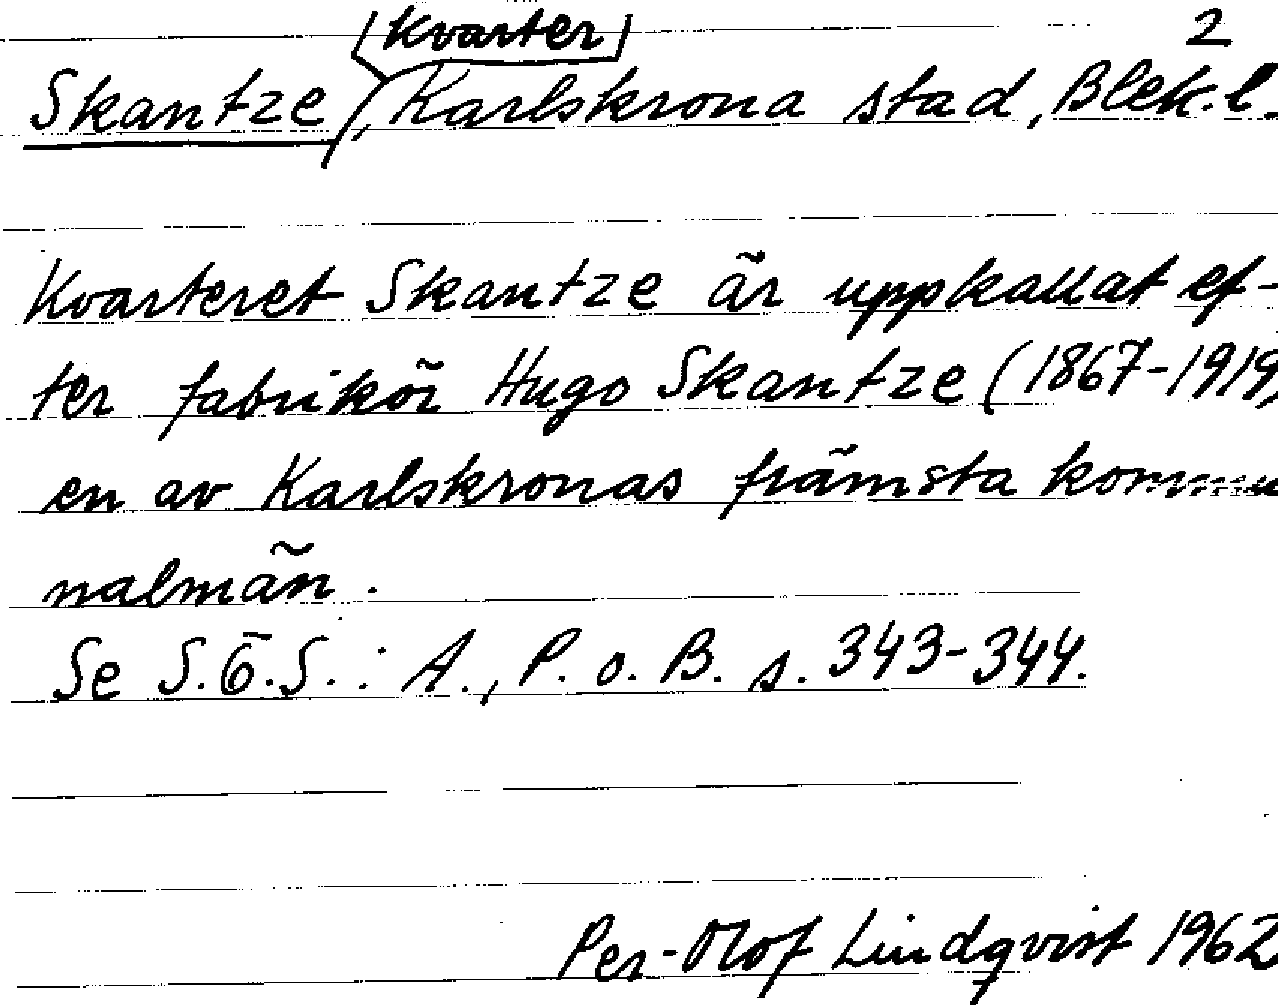 Kvarter 2
Skantze, Karlskrona stad, Blek.l.
Kvarteret Skantze är uppkallat ef-
ter fabrikör Hugo Skantze (1867-1919)
en av Karlskronas främsta kommu
nalmän.
Se S.Ö.S.: A., P. o. B. s. 343-344.
Per-Olof Lindqvist 1962